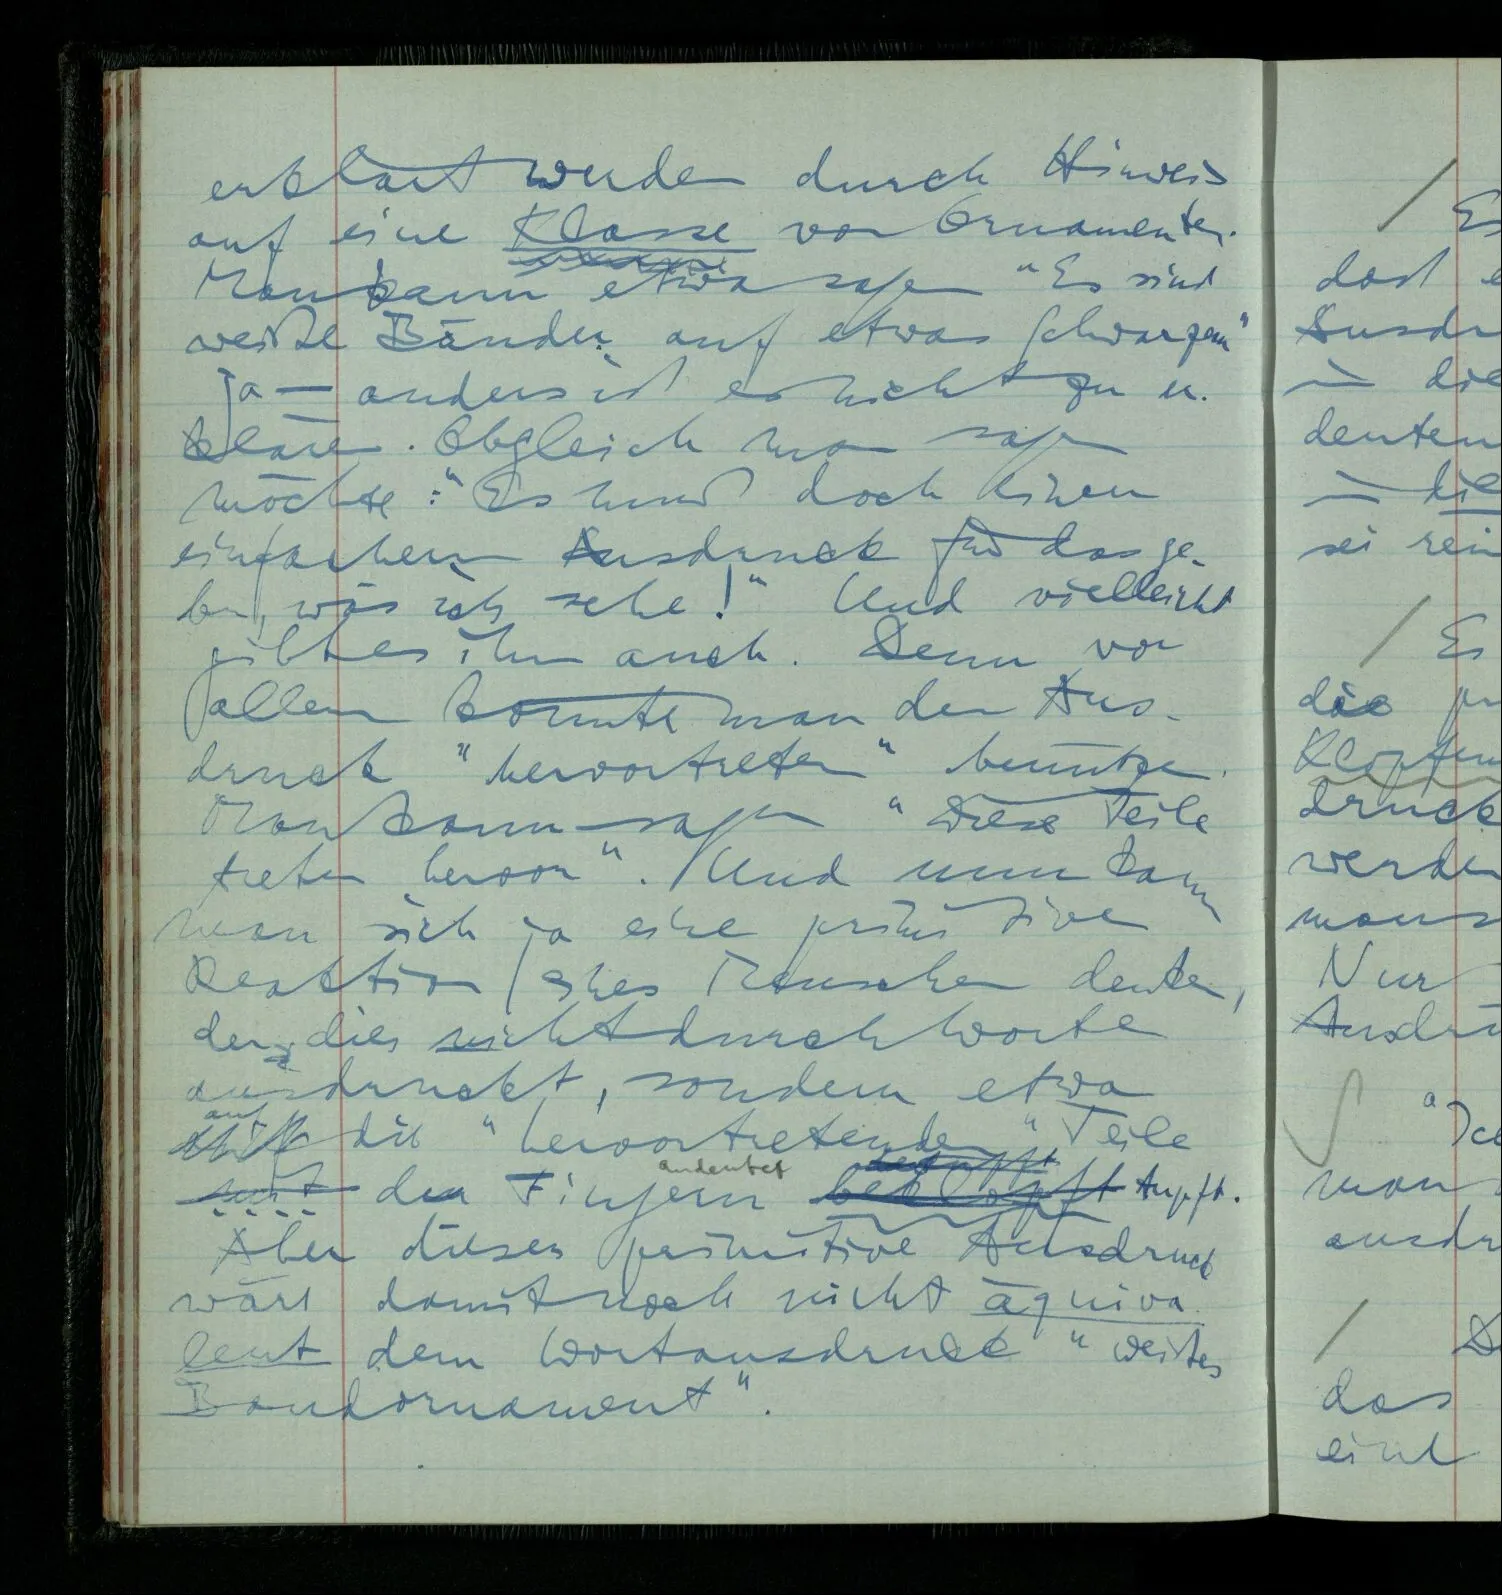 erklärt werden durch Hinweis
auf eine Klasse von Ornamenten.
Man kann etwa sagen "Es sind
weiße Bänder auf etwas Schwarzem"
ja — anders ist es nicht zu er-
klären. Obgleich man sagen
möchte: "Es muß doch einen
einfachern Ausdruck für das ge-
ben, was ich sehe!" Und vielleicht
gibt es ihn auch. Denn vor
allem könnte man den Aus-
druck "hervortreten" benützen.
Man kann sagen "diese Teile
treten hervor". Und nun kann
man sich ja eine primitive
Reaktion eines Menschen denken,
der dies nicht durch Worte
ausdrückt, sondern etwa
auf die "hervortretenden" Teile
mit den Fingern andeutet beklopft tupft.
Aber dieser primitive Ausdruck
wäre damit noch nicht äquiva-
lent dem Wortausdruck "weißes
Bandornament".
/ Es
das
Ausdr
in die
deuten
in die
sei rein
/ Es
die
Klopfen
druck
werden
man s
Nur
Ausdrü
man
ausdr
/ D
das
eine